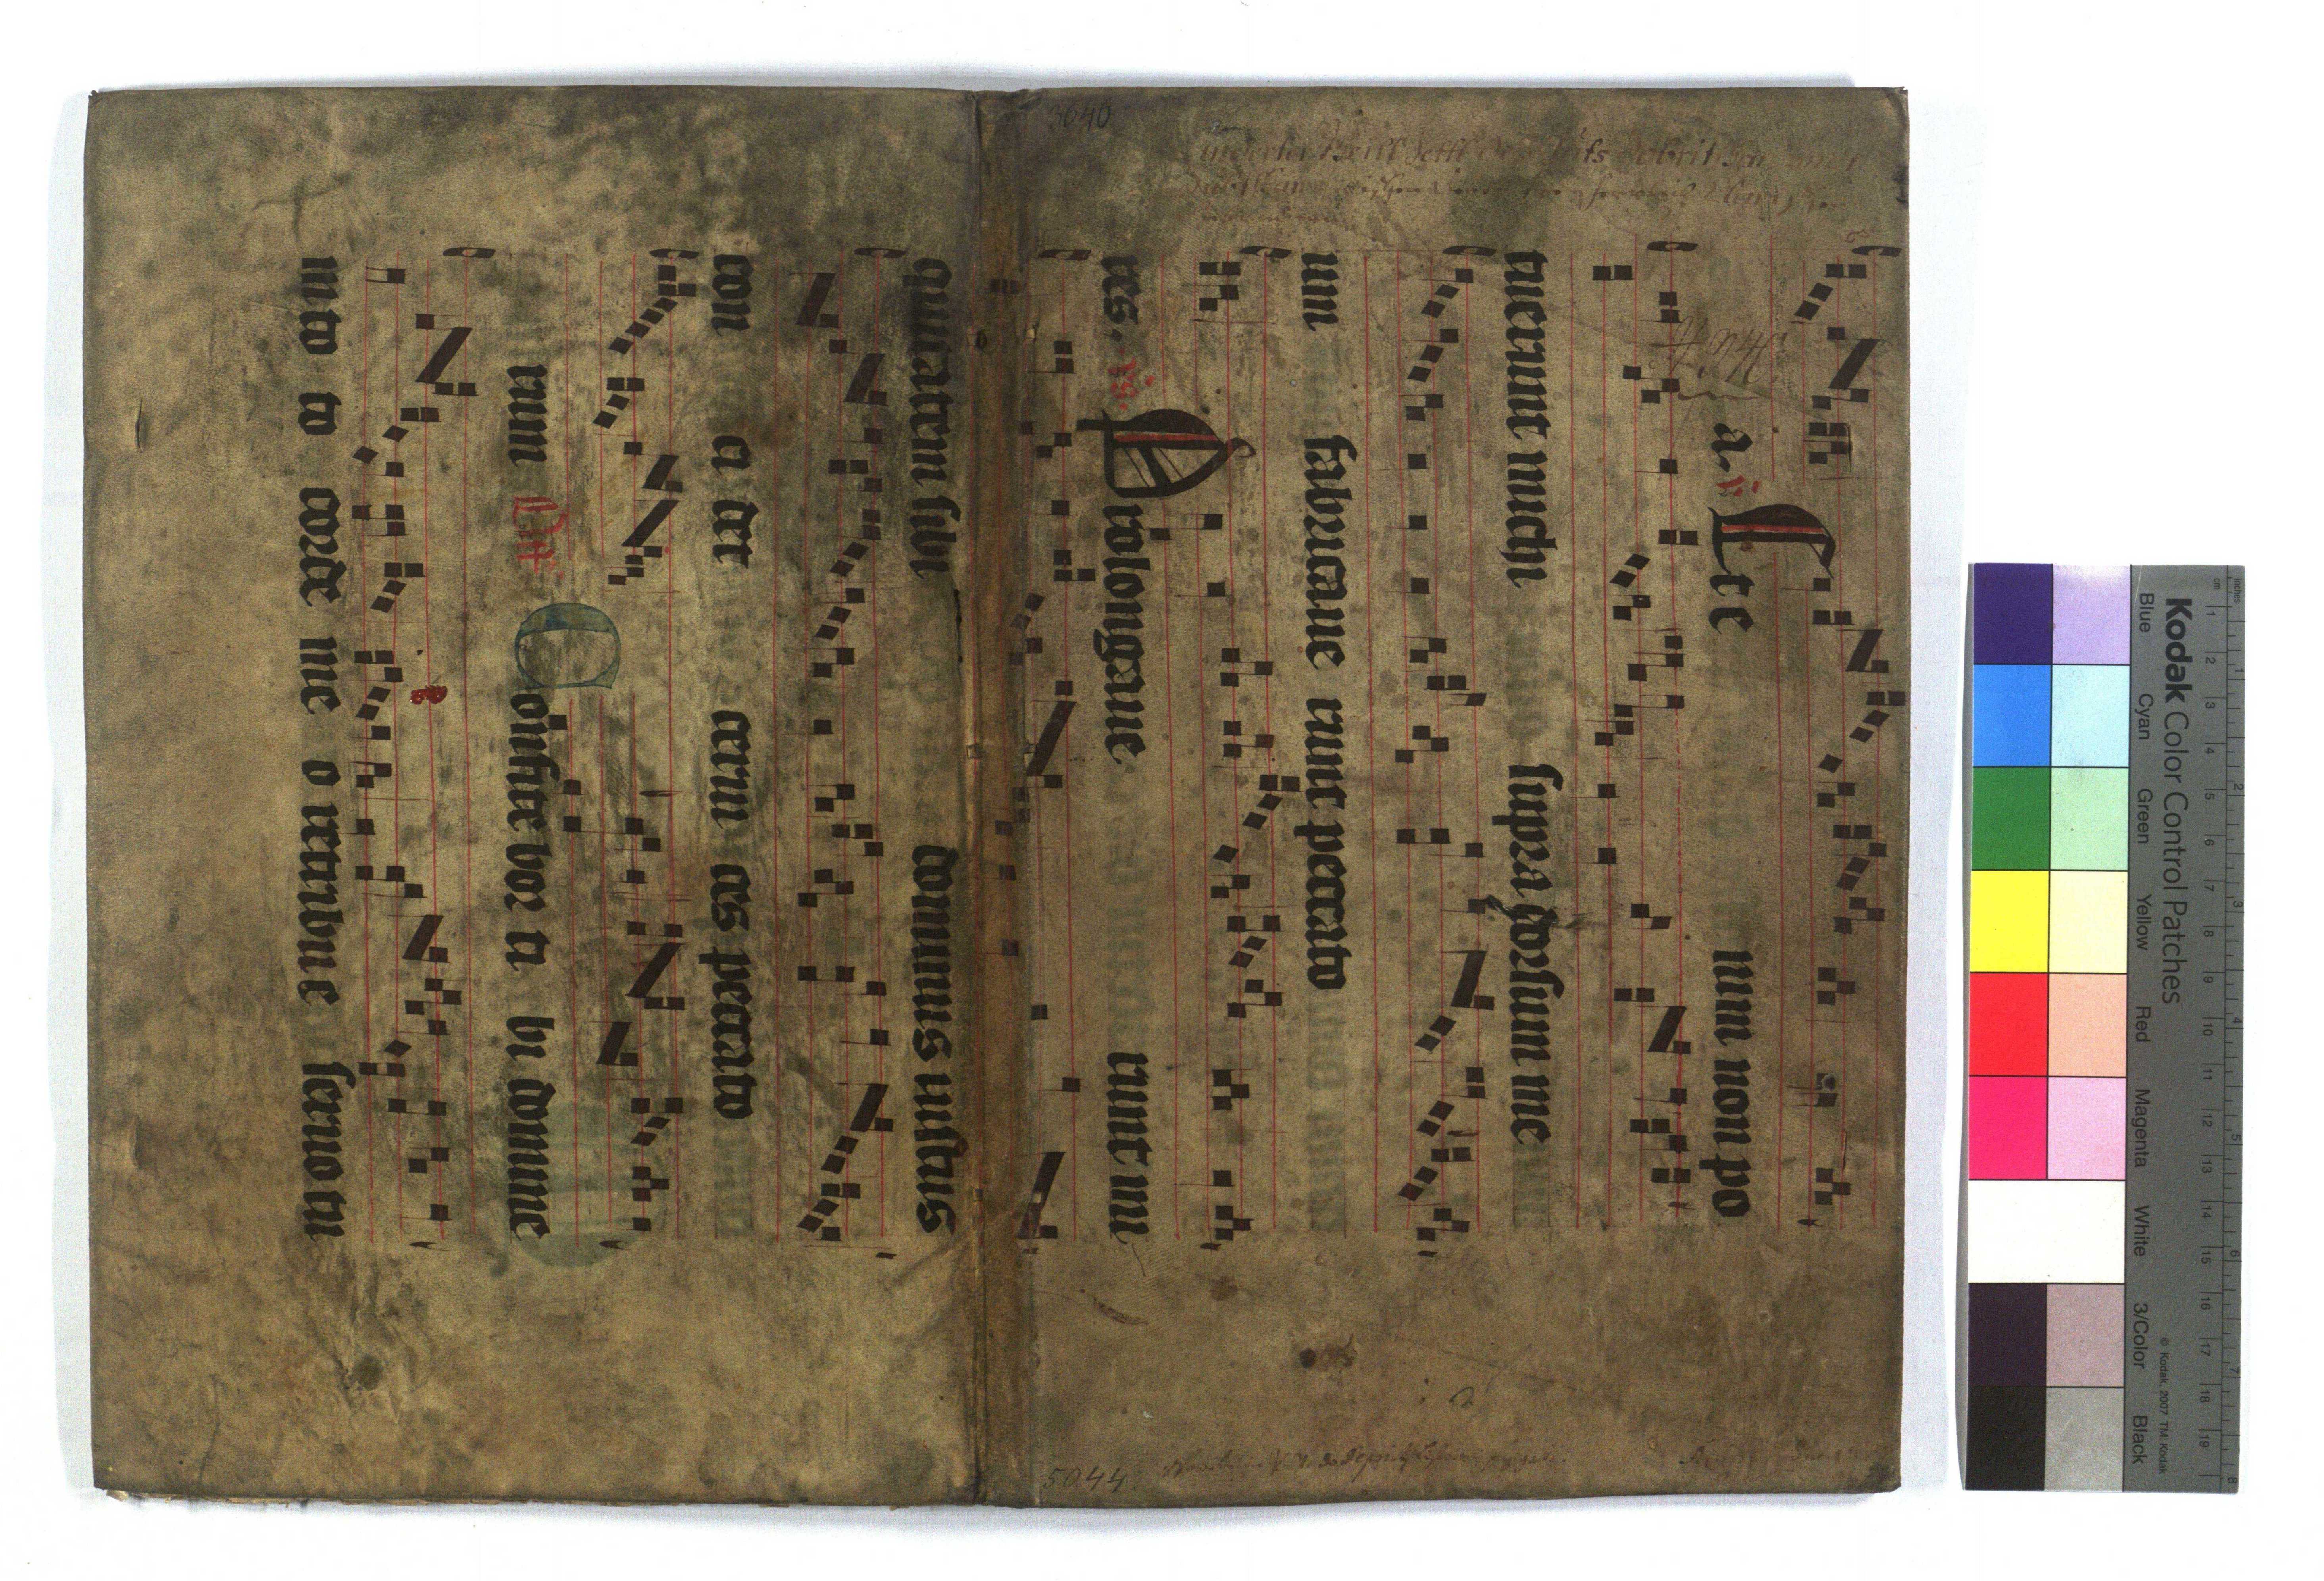 a. V. Ete nim non po
tuerunt michi supra dorsum me
um fabricaue runt peccato
res. Vs. Prolongaue runt ini
quitatem sibi dominus iustus
con ci det cerui ces peccato
rum Off. Confitebor ti bi domine
in to to corde me o retribue seruotu
3640
5044
Kodak Color Control Patches
© Kodak, 2007 TM: Kodak
Blue Cyan Green Yellow Red Magenta White 3/Color Black
inches 1 2 3 4 5 6 7 8
cm 1 2 3 4 5 6 7 8 9 10 11 12 13 14 15 16 17 18 19